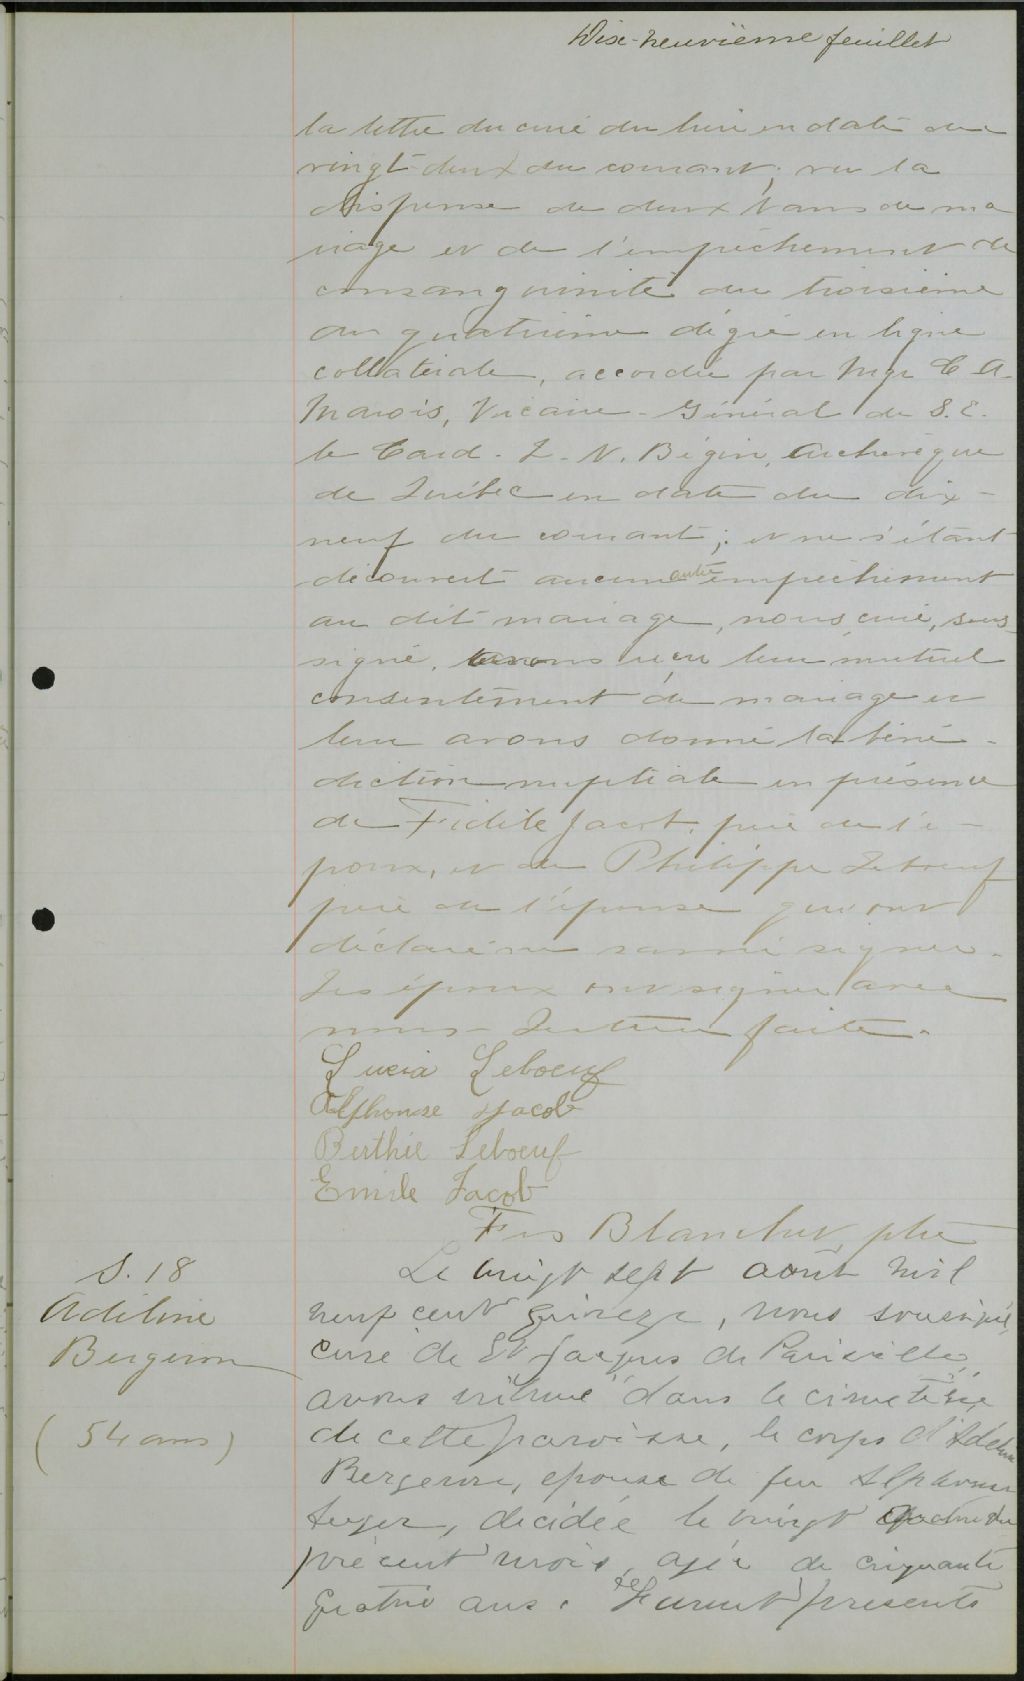 Dix-neuvième feuillet
la lettre du curé du lieu en date du
vingt-deux du courant; vu la
dispense de deux bans de ma
riage et de l'empêchement de
consanguinité du troisième
au quatrième dégré en ligne
collatérale, accordée par Mgr C. A.
Marois, Vicaire-Général de S. E.
le Card. L. N. Bégin, Archevêque
de Québec en date du dix-
neuf du courant; et ne s'étant
découvert aucun autre empêchement
au dit mariage, nous, curé, sous
signé, avons reçu leur mutuel
consentement de mariage et
leur avons donné la béné-
diction nuptiale en présence
de Fidèle Jacob, père de l'é-
poux, et de Philippe Leboeuf
père de l'épouse qui ont
déclaré ne savoir signer.
Les époux ont signé avec
nous. Lecture faite.
Lucia Leboeuf
Alphonse Jacob
Berthie Leboeuf
Emile Jacob
Frs Blanchet, ptre
S. 18
Adéline
Bergeron
(54 ans)
Le vingt sept août mil
neuf cent quinze, nous soussigné,
curé de St Jacques de Parisville,
avons inhumé dans le cimetière
de cette paroisse, le corps d'Adéline
Bergeron, épouse de feu Alphonse
Auger, décidée le vingt quatre du
précent mois, agée de cinquante
quatre ans. Furent présents